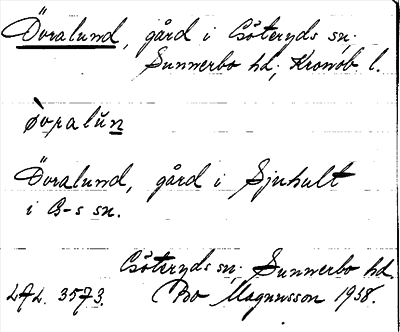 Övralund, gård i Göteryds sn.
Sunnerbo hd, Kronob. l.
òvralŭn
Övralund, gård i Sjuhult
i G-s sn.
Göteryds sn, Sunnerbo hd
LAL. 3573. Bo Magnusson 1938.